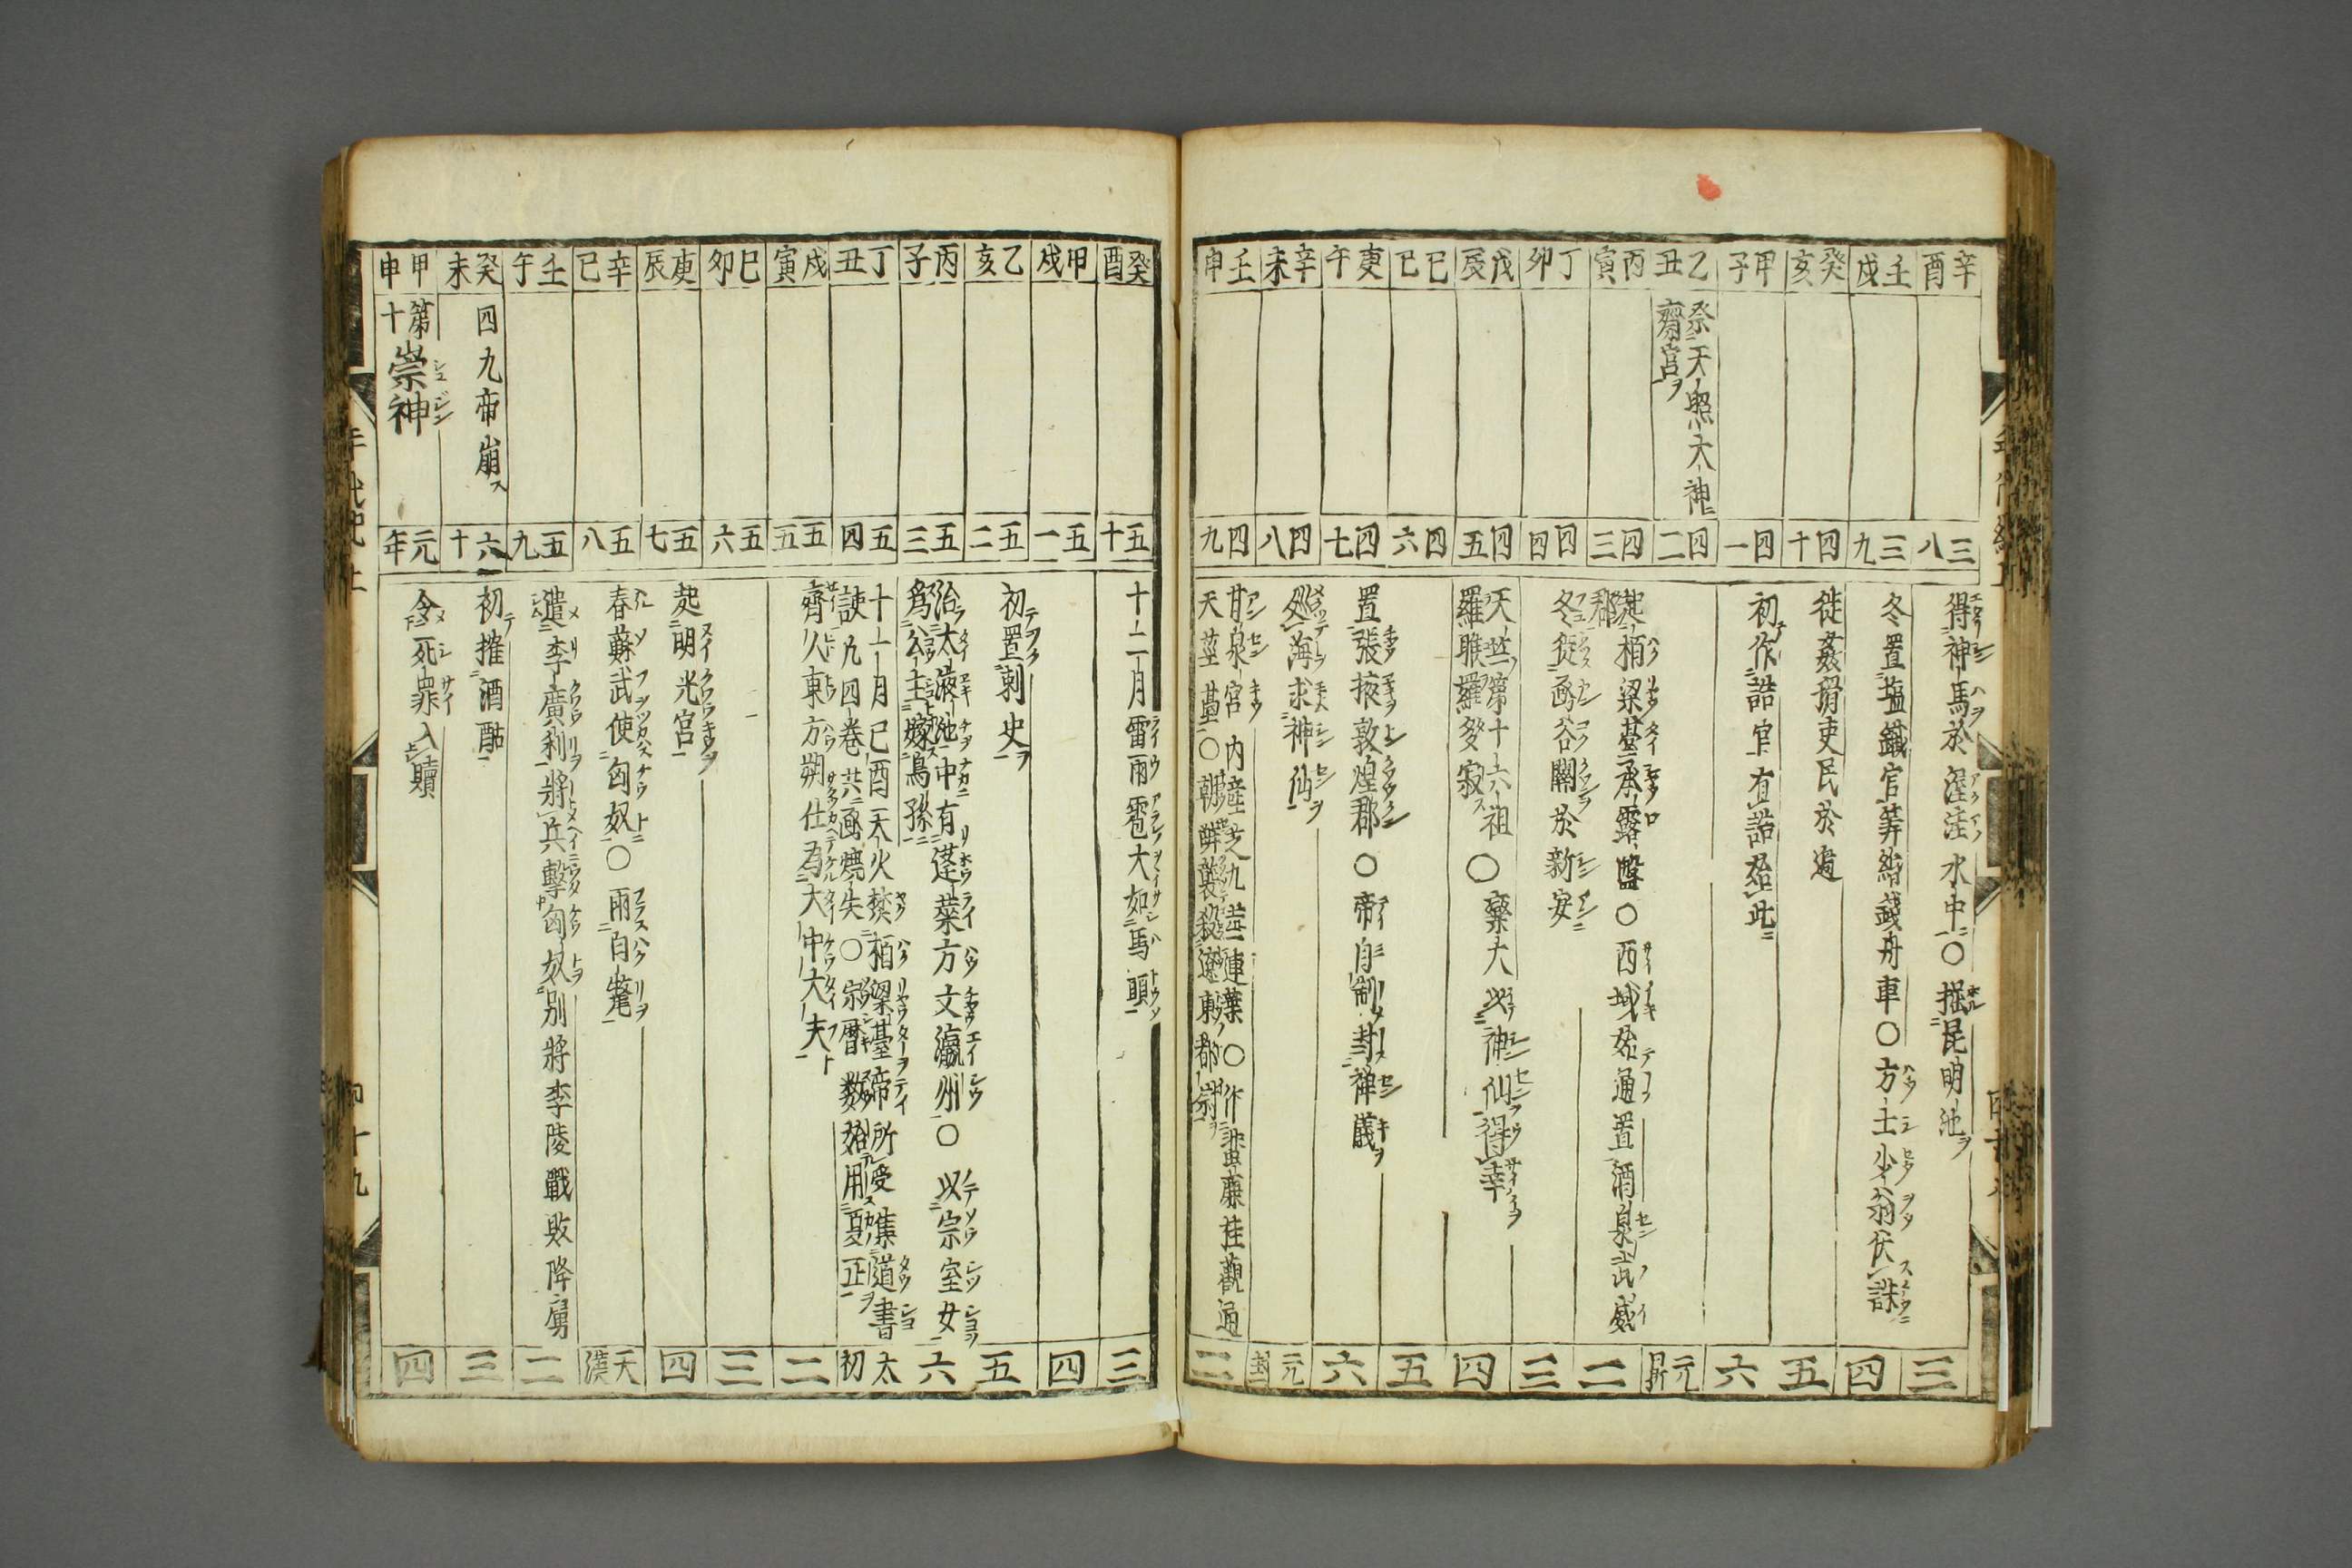 辛酉
三八
得神馬於渥洼水中○掘昆明池
三
壬戌
三九
冬置塩鐵官筭緡錢舟車○方士少翁伏誅
四
癸亥
四十
徙姦猾吏民於邊
五
甲子
四一
初作誥官有誥始此
六
乙丑
祭天照大神
齋宮
四二
元鼎
丙寅
四三
起栢梁臺承露盤○西域始通置酒泉武威
郡
二
丁卯
四四
冬徙函谷關於新安
三
戊辰
四五
天竺第十六祖○欒大以神仙得幸
羅睺羅多寂
四
己巳
四六
五
庚午
四七
置張掖敦煌郡○帝自制封禅儀
六
辛未
四八
巡海求神仙
元封
壬申
四九
甘泉宮内産芝九莖連葉○作蜚廉桂觀通
天莖臺○朝鮮襲殺遼東郡尉
二
癸酉
五十
十二月雷雨雹大如馬頭
三
甲戌
五一
四
乙亥
五二
初置刺史
五
丙子
五三
治太液池中有蓬萊方丈瀛州○以宗室女
為公主嫁烏孫
六
丁丑
五四
十一月己酉天火焚栢梁臺帝所受集道書
諌九四巻共函燒失○宗暦数始用夏正
太初
戊寅
五五
齊人東方朔仕為大中大夫
二
己卯
五六
三
庚辰
五七
起明光宮
四
辛巳
五八
春蘇武使匈奴○雨白氂
天漢
壬午
五九
遣李廣利將兵擊匈奴別將李陵戰敗降虜
二
癸未
四九帝崩
六十
初搉酒酤
三
甲申
第十
崇神
元年
令死罪入贖
四